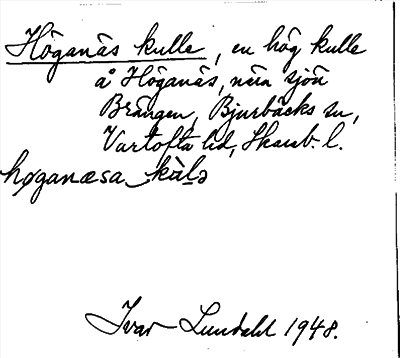 Höganäs kulle, en hög kulle
å Höganäs, nära sjön
Brängen, Bjurbäcks sn,
Vartofta hd, Skarab. l.
høganæsa kùlə
Ivar Lundahl 1948.